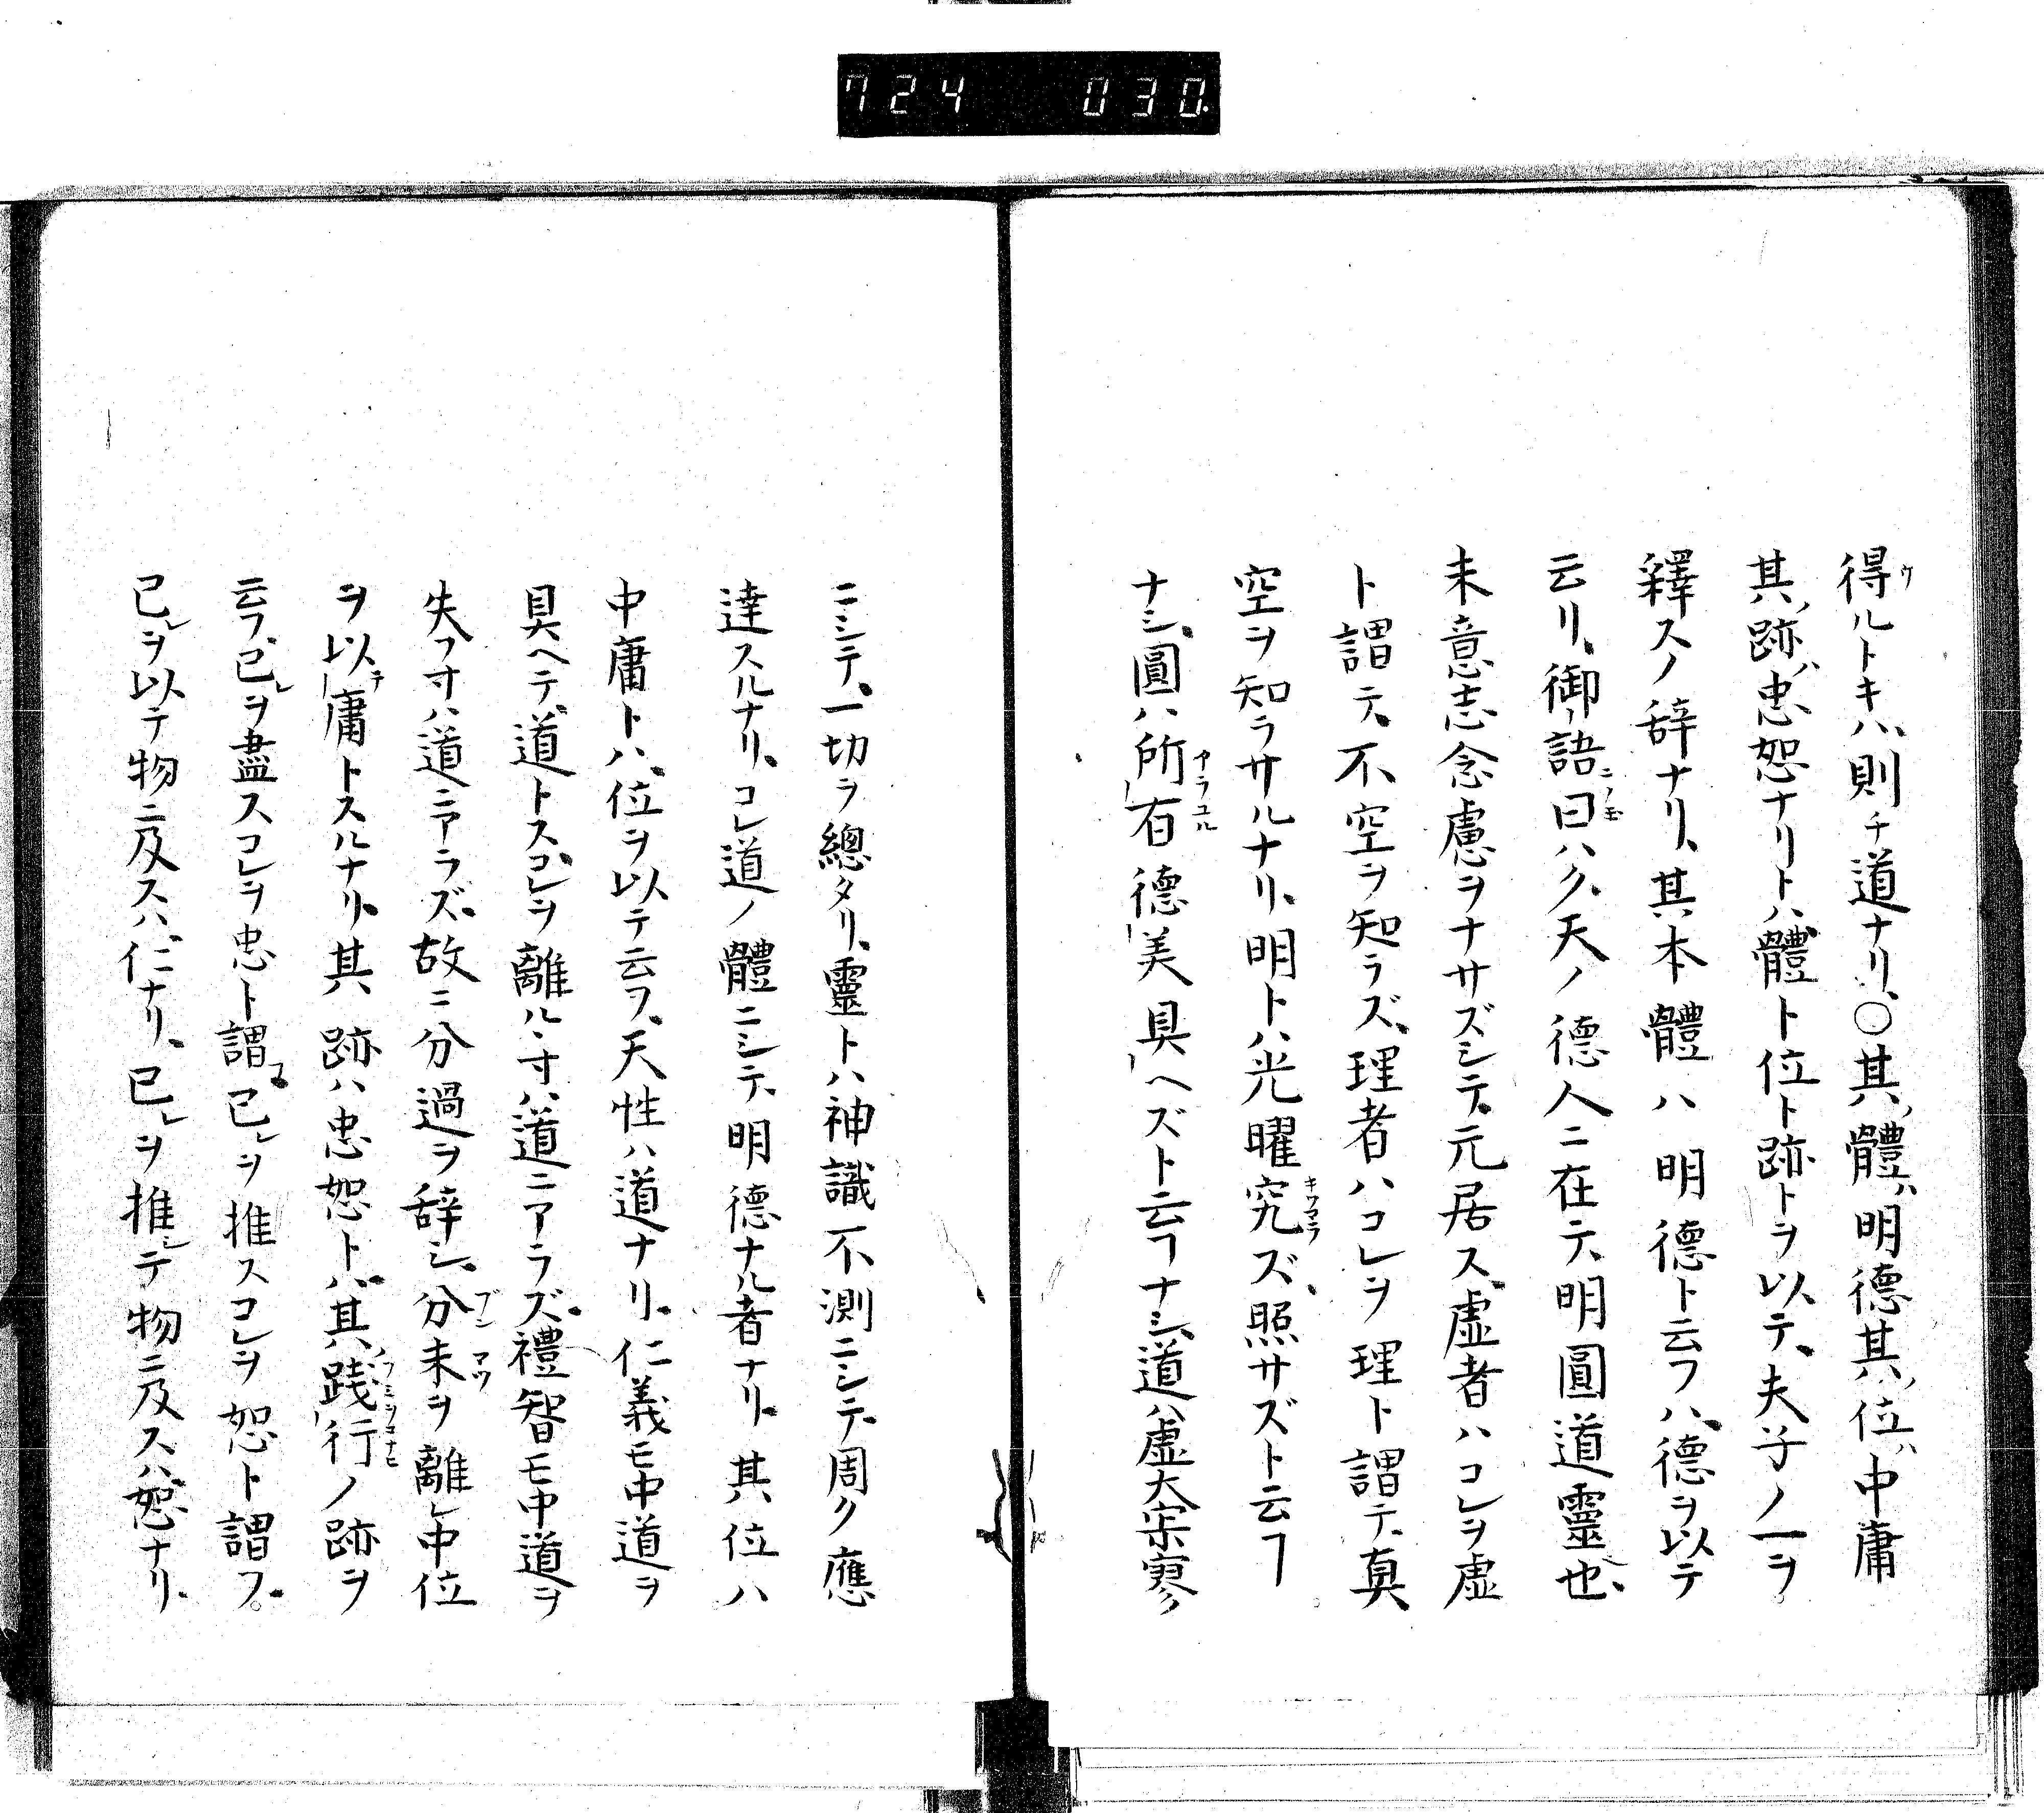 724 030
得ルトキハ、則チ道ナリ、〇其ノ體ハ明德其ノ位ハ中庸
其ノ跡ハ忠恕ナリトハ、體ト位ト跡トヲ以テ、夫子ノ一ヲ
釋スノ辞ナリ、其本體ハ明德ト云フハ、德ヲ以テ
云リ、御語ニ曰ハク、天ノ德人ニ在テ、明圓道靈也、
未意志念慮ヲナサズシテ、元居ス、虚者ハコレヲ虚
ト謂テ、不空ヲ知ラズ、理者ハコレヲ理ト謂テ、真
空ヲ知ラサルナリ、明トハ光曜究ズ、照サズト云ヿ
ナシ、圓ハ所有德美具ヘズト云ヿナシ、道ハ虚大宗寥
ニシテ、一切ヲ總タリ、靈トハ神識不測ニシテ、周ク應
達スルナリ、コレ道ノ體ニシテ、明德ナル者ナリ、其位ハ
中庸トハ、位ヲ以テ云フ、天性ハ道ナリ、仁義モ中道ヲ
具ヘテ、道トス、コレヲ離ルヽ寸ハ、道ニアラズ、禮智モ中道ヲ
失フ寸ハ、道ニアラズ、故ニ分過ヲ辞シ、分未ヲ離レ、中位
ヲ以テ庸トスルナリ、其跡ハ忠恕トハ、其ノ踐行ノ跡ヲ
云フ、己レヲ盡スコレヲ忠ト謂フ、己レヲ推スコレヲ恕ト謂フ、
己レヲ以テ物ニ及スハ、仁ナリ、己レヲ推シテ物ニ及スハ、恕ナリ、